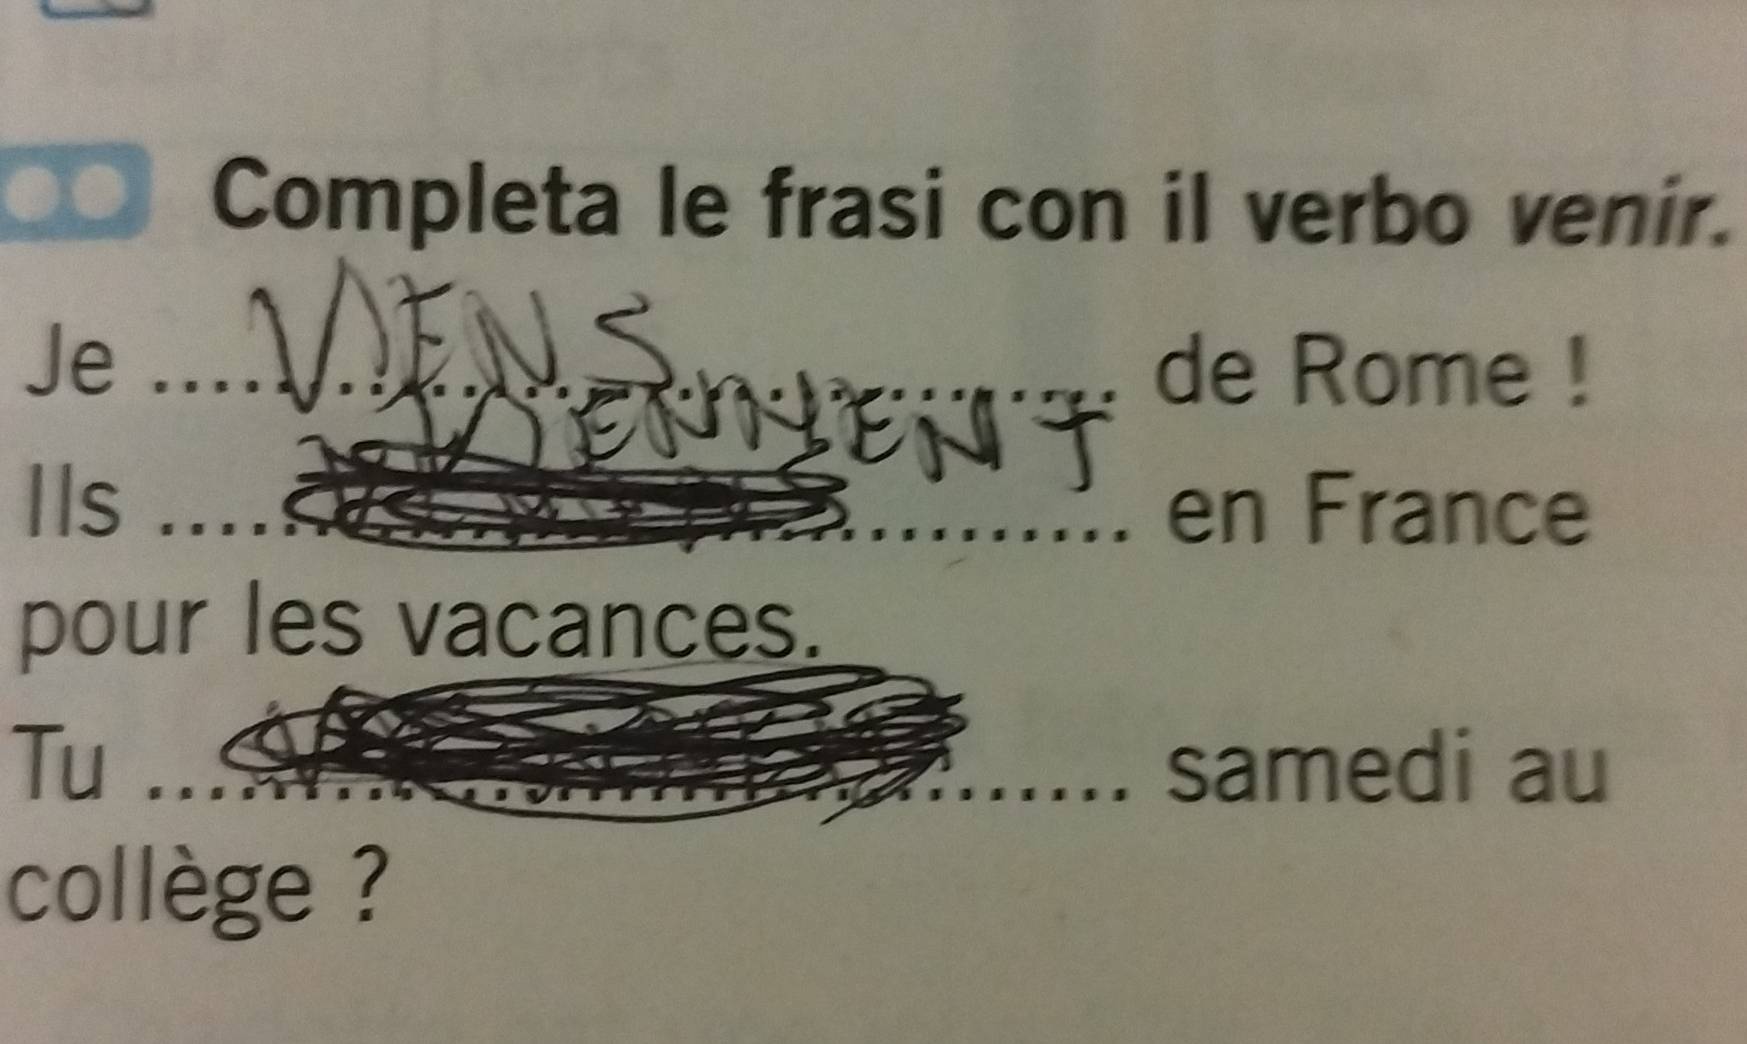 Completa le frasi con il verbo venir.
Je VIENS de Rome !
Ils VIENNENT en France
pour les vacances.
Tu ........ samedi au
collège ?